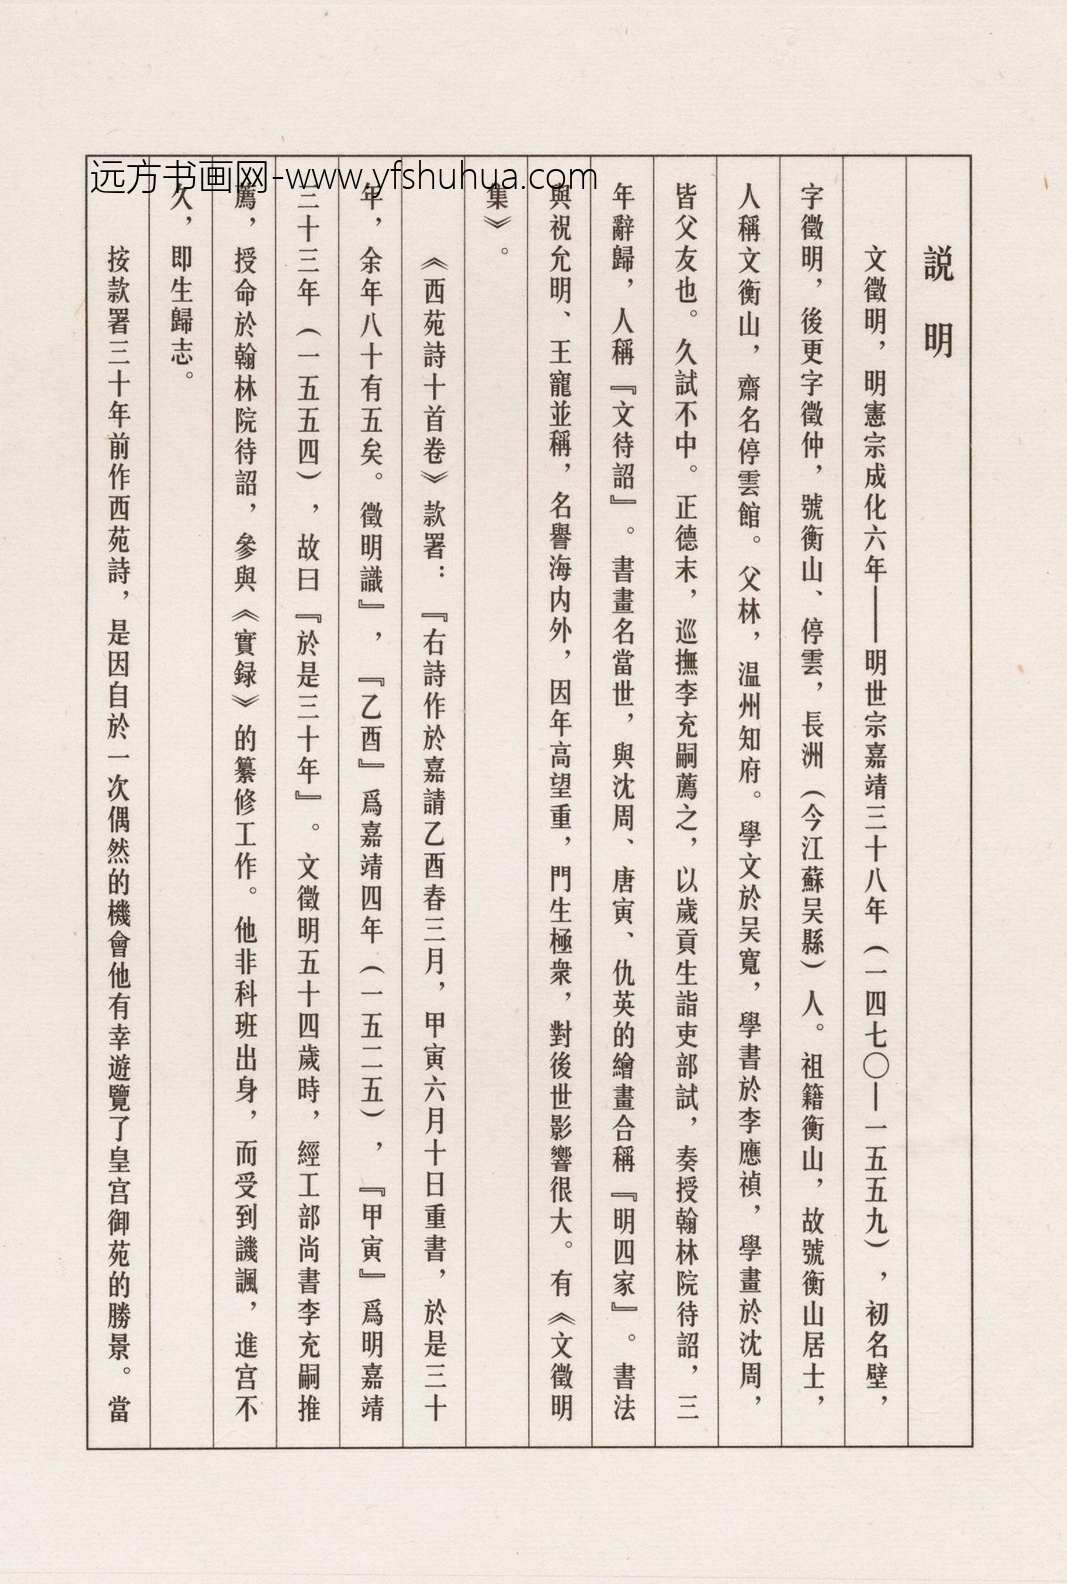 远方书画网-www.yfshuhua.com
説明
文徵明，明憲宗成化六年——明世宗嘉靖三十八年（一四七〇—一五五九），初名壁，
字徵明，後更字徵仲，號衡山、停雲，長洲（今江蘇吴縣）人。祖籍衡山，故號衡山居士，
人稱文衡山，齋名停雲館。父林，温州知府。學文於吴寬，學書於李應禎，學畫於沈周，
皆父友也。久試不中。正德末，巡撫李充嗣薦之，以歲貢生詣吏部試，奏授翰林院待詔，三
年辭歸，人稱『文待詔』。書畫名當世，與沈周、唐寅、仇英的繪畫合稱『明四家』。書法
與祝允明、王寵並稱，名譽海内外，因年高望重，門生極衆，對後世影響很大。有《文徵明
集》。
《西苑詩十首卷》款署：『右詩作於嘉請乙酉春三月，甲寅六月十日重書，於是三十
年，余年八十有五矣。徵明識』，『乙酉』爲嘉靖四年（一五二五），『甲寅』爲明嘉靖
三十三年（一五五四），故曰『於是三十年』。文徵明五十四歲時，經工部尚書李充嗣推
薦，授命於翰林院待詔，參與《實録》的纂修工作。他非科班出身，而受到譏諷，進宫不
久，即生歸志。
按款署三十年前作西苑詩，是因自於一次偶然的機會他有幸遊覽了皇宫御苑的勝景。當